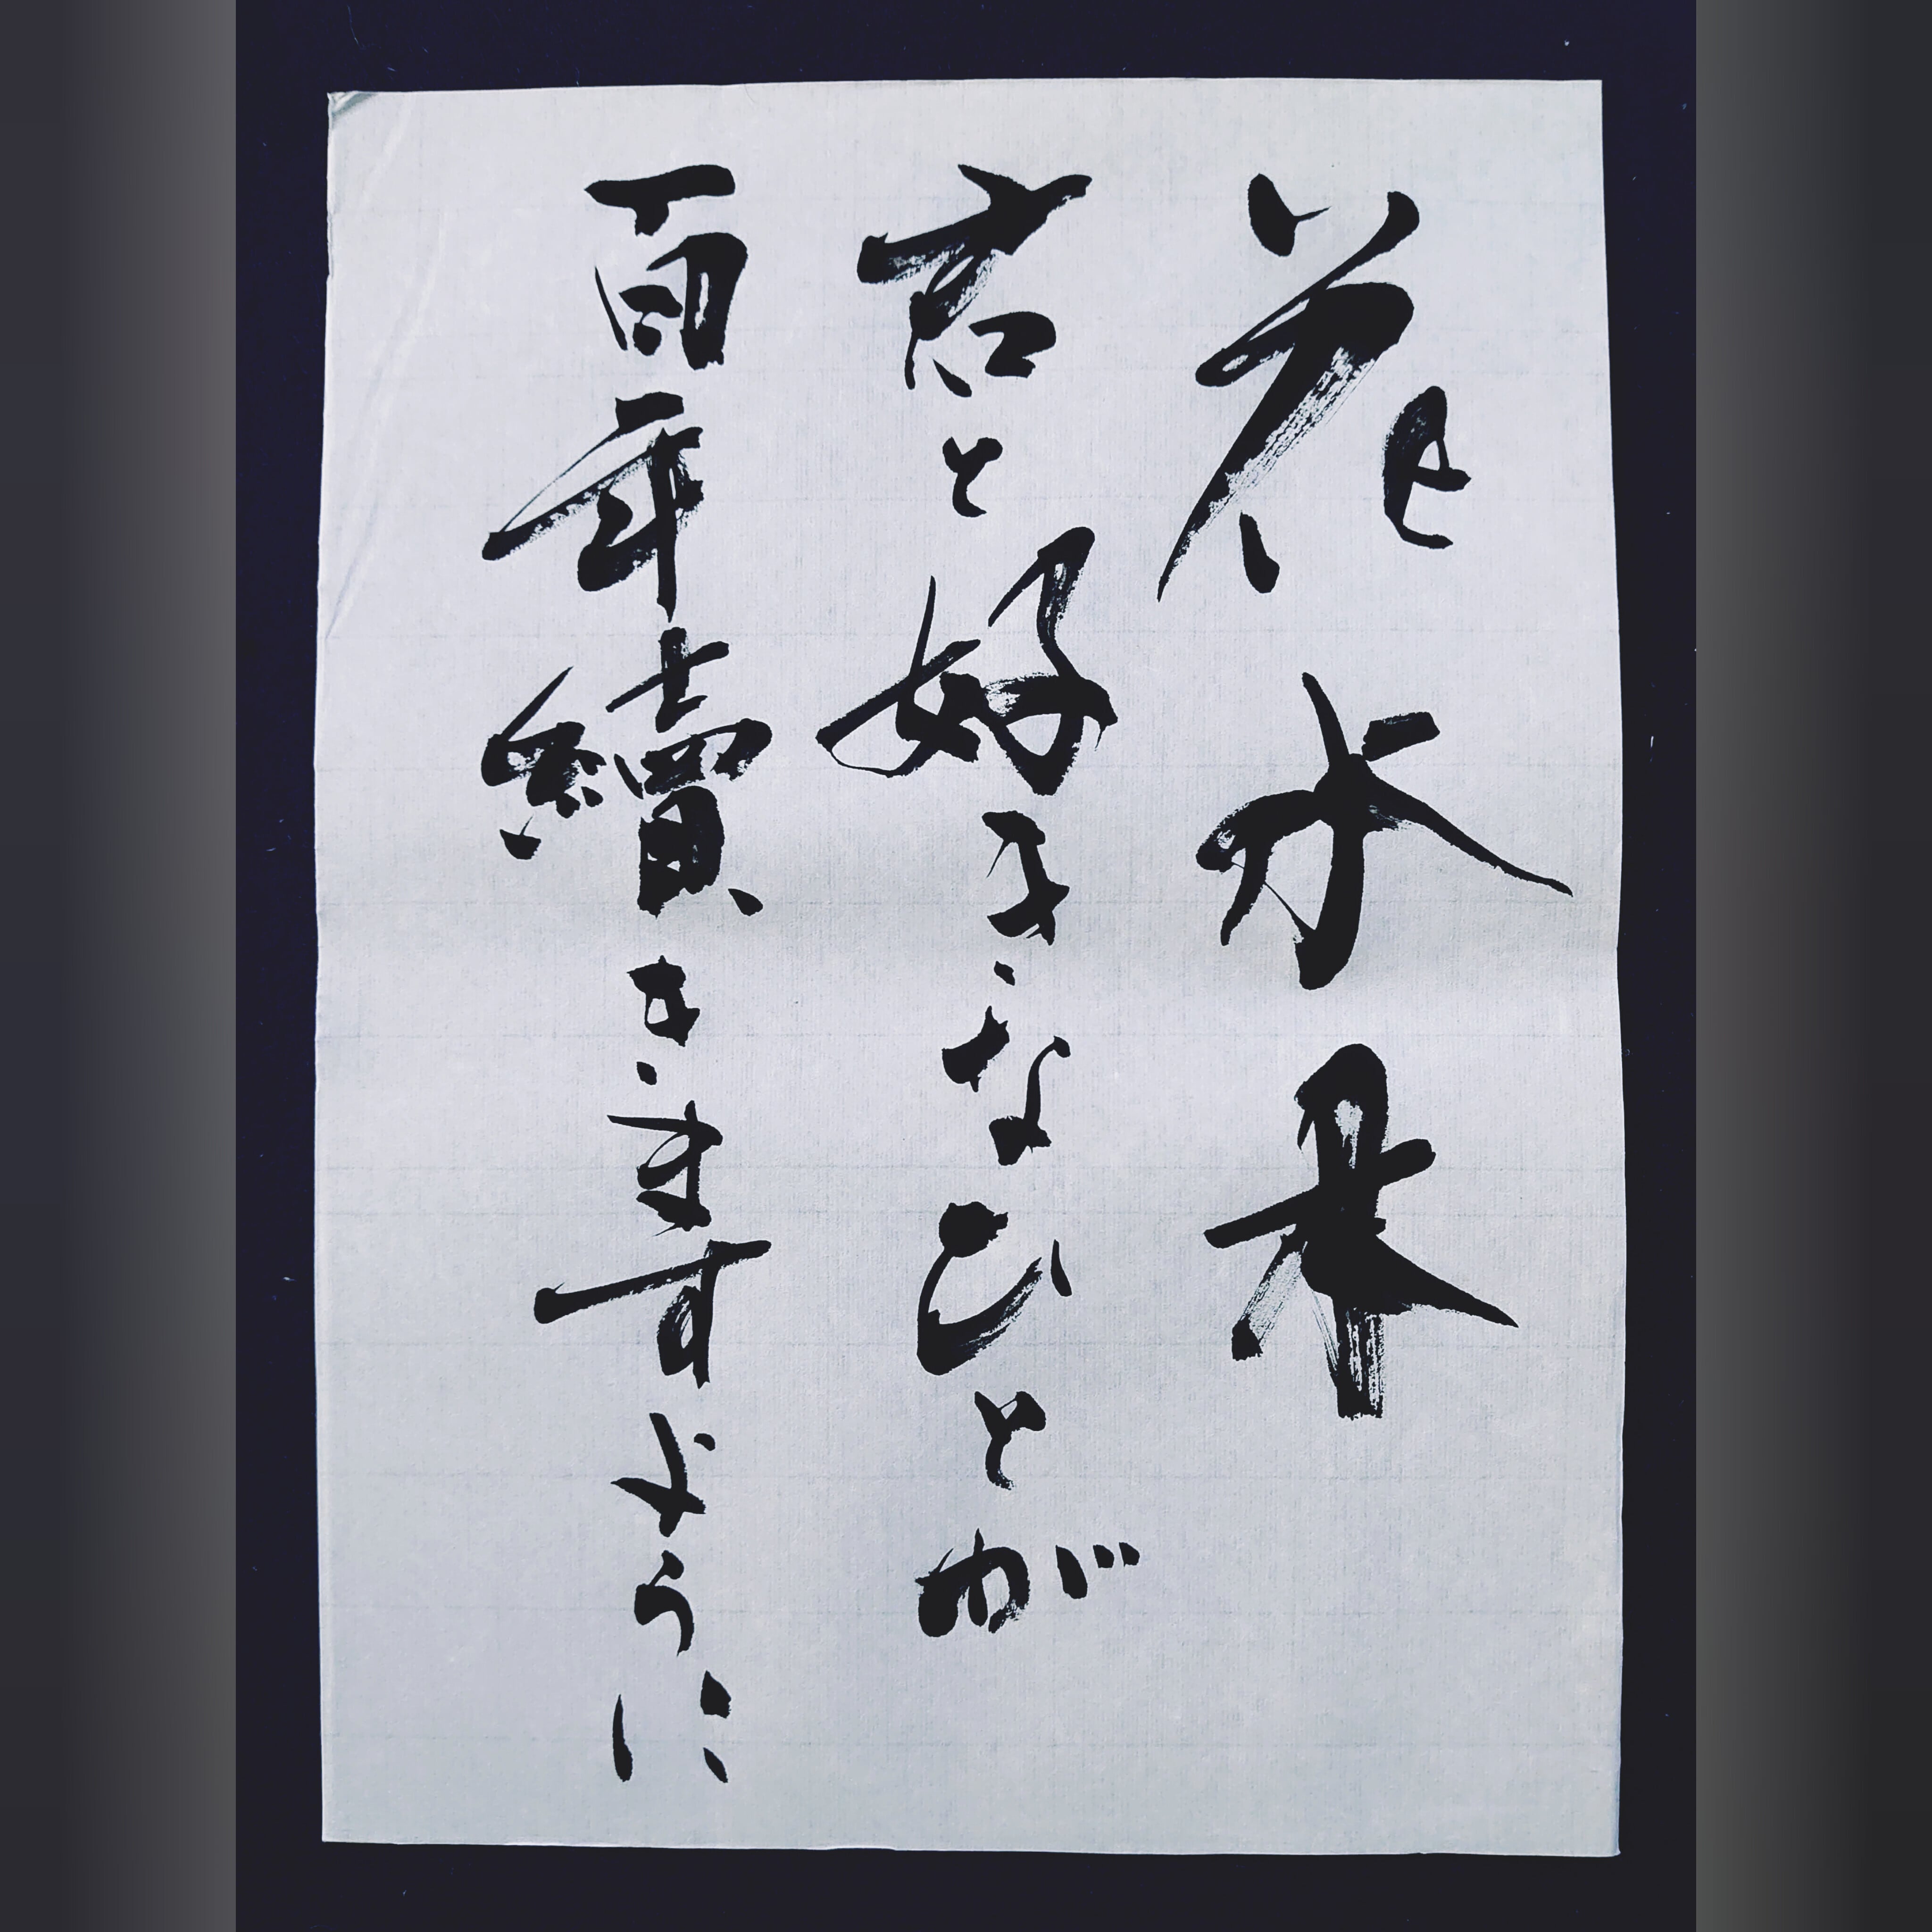 花水木
君と好きなひとが
百年續きますように